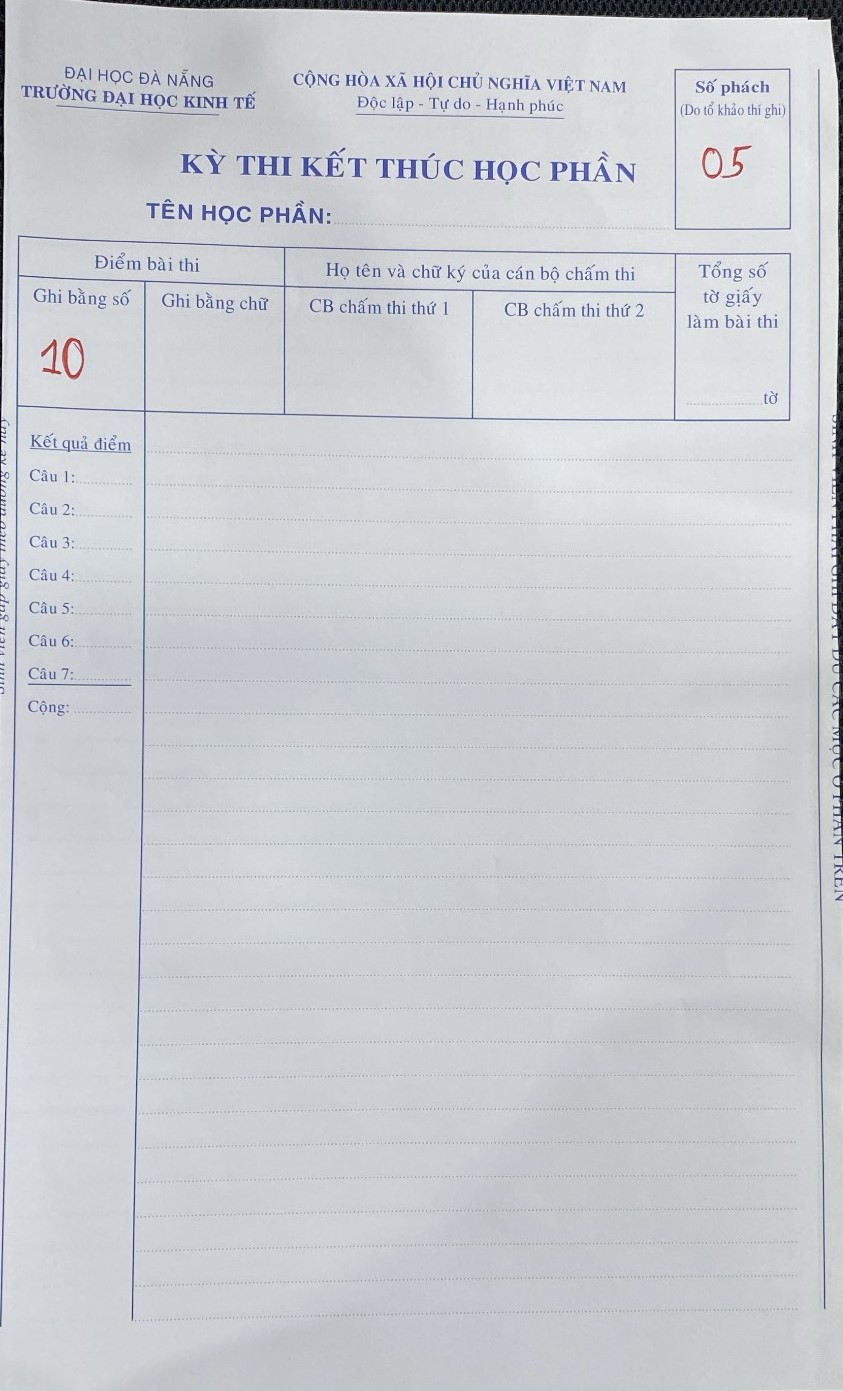 ĐẠI HỌC ĐÀ NẴNG
TRƯỜNG ĐẠI HỌC KINH TẾ
CỘNG HÒA XÃ HỘI CHỦ NGHĨA VIỆT NAM
Độc lập - Tự do - Hạnh phúc
Số phách
(Do tổ khảo thí ghi)
05
KỲ THI KẾT THÚC HỌC PHẦN
TÊN HỌC PHẦN:
Điểm bài thi
Họ tên và chữ ký của cán bộ chấm thi
Tổng số
tờ giấy
làm bài thi
Ghi bằng số
Ghi bằng chữ
CB chấm thi thứ 1
CB chấm thi thứ 2
10
tờ
Kết quả điểm
Câu 1:
Câu 2:
Câu 3:
Câu 4:
Câu 5:
Câu 6:
Câu 7:
Cộng: